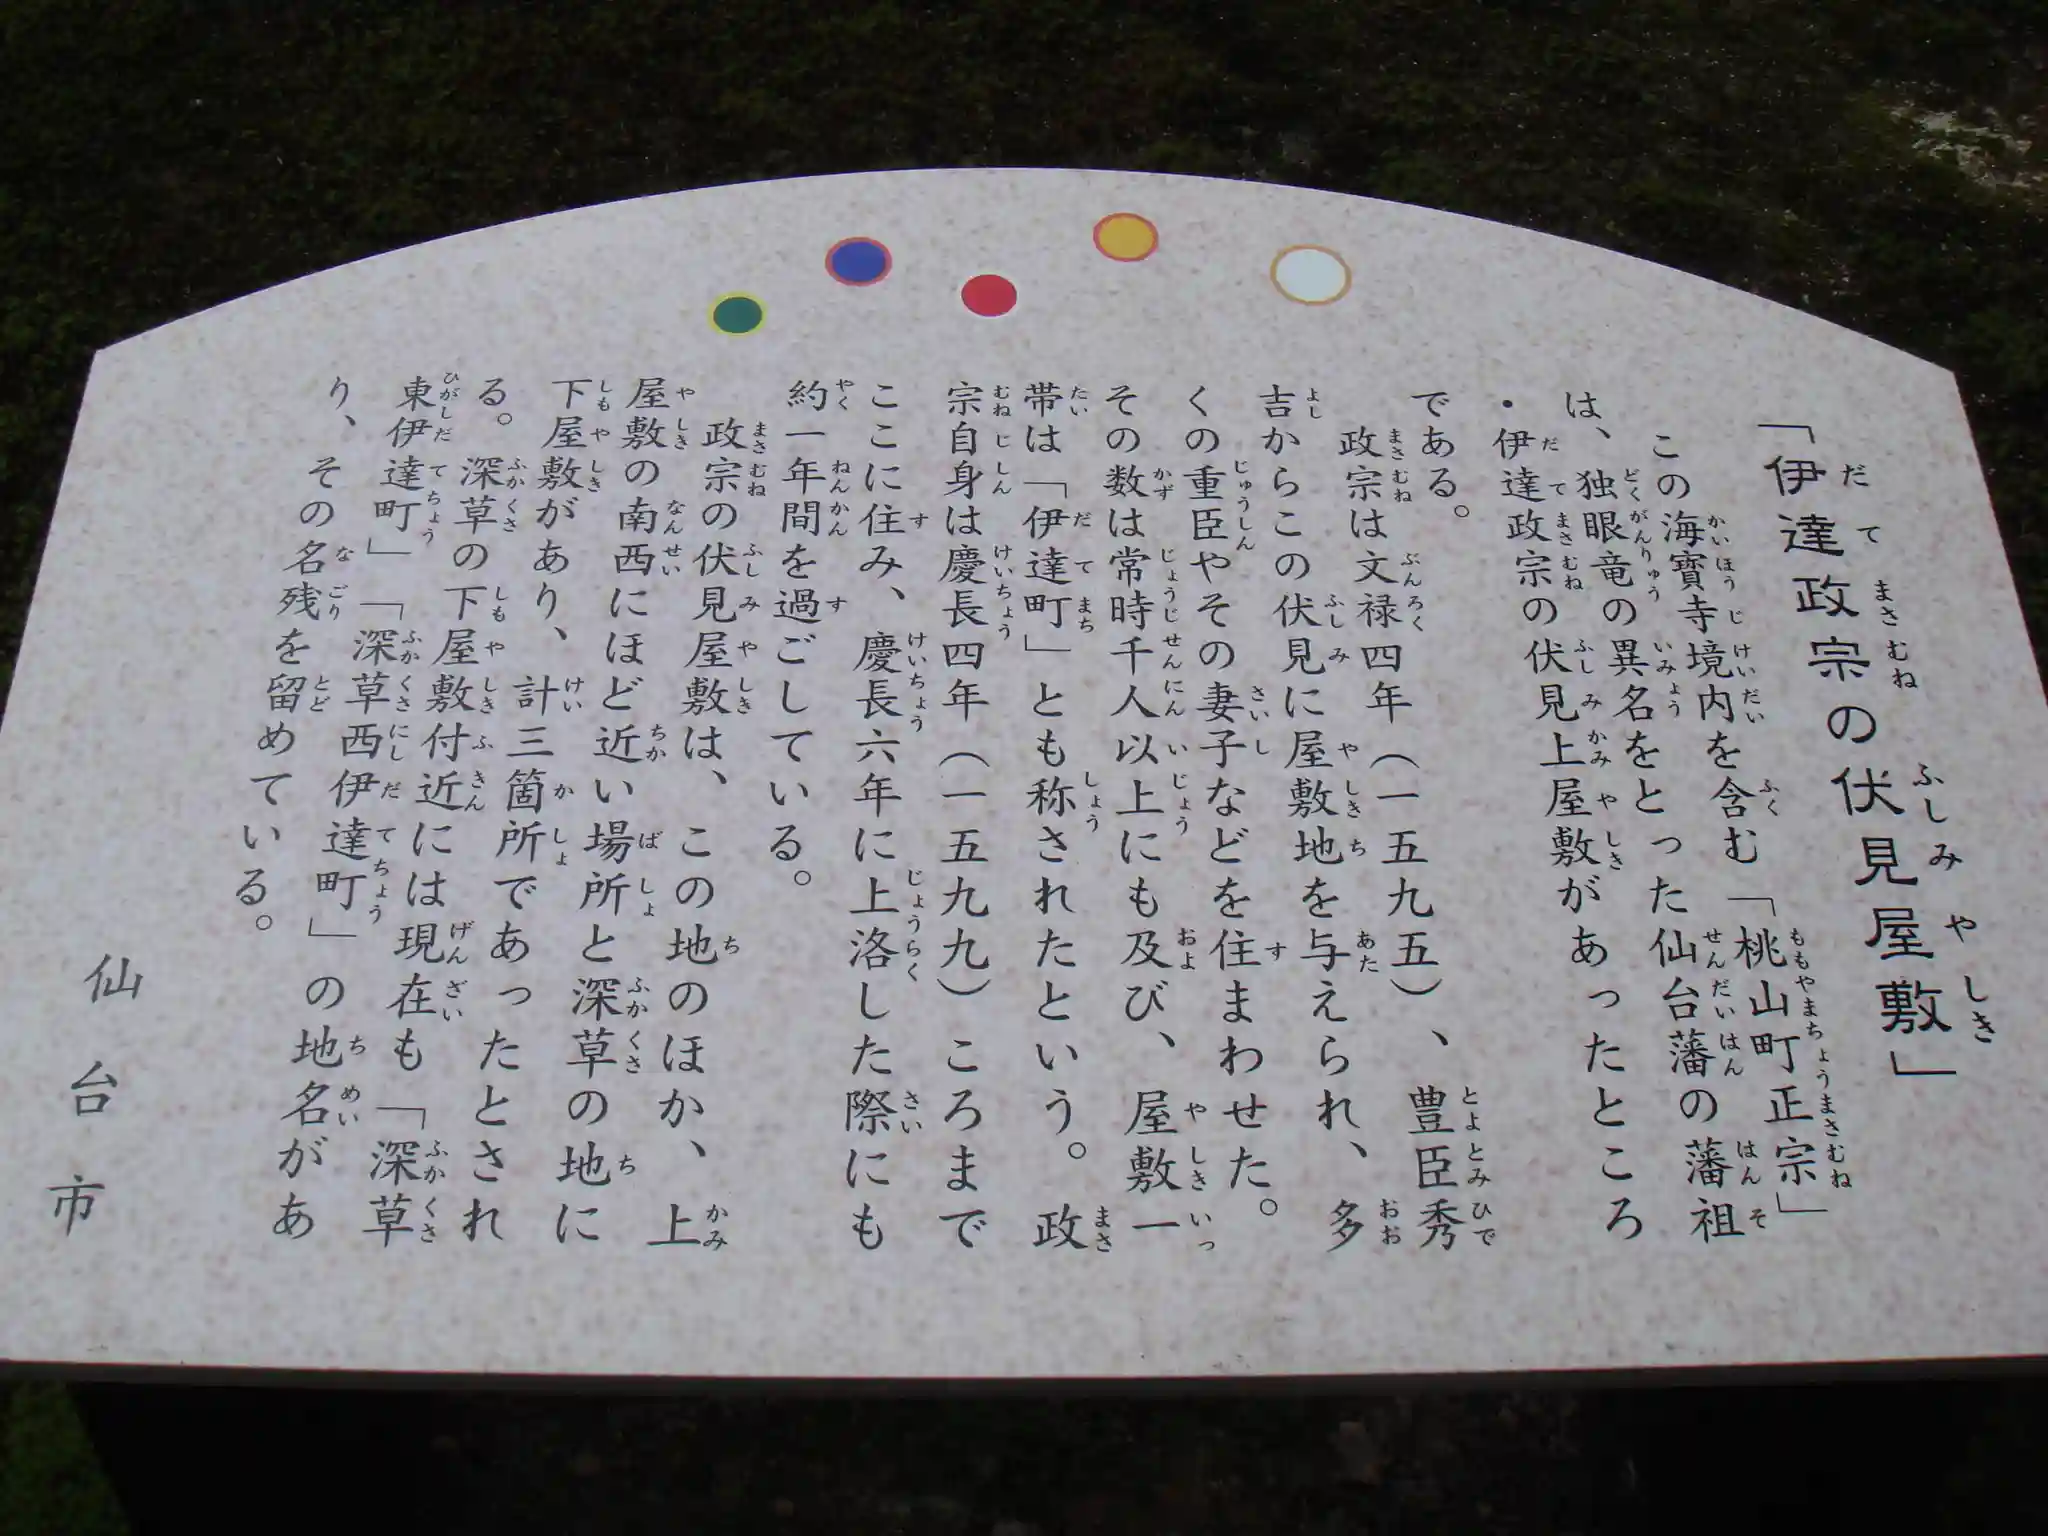 「伊達政宗の伏見屋敷」
この海寶寺境内を含む「桃山町正宗」
は、独眼竜の異名をとった仙台藩の藩祖
・伊達政宗の伏見上屋敷があったところ
である。
政宗は文禄四年（一五九五）、豊臣秀
吉からこの伏見に屋敷地を与えられ、多
くの重臣やその妻子などを住まわせた。
その数は常時千人以上にも及び、屋敷一
帯は「伊達町」とも称されたという。政
宗自身は慶長四年（一五九九）ころまで
ここに住み、慶長六年に上洛した際にも
約一年間を過ごしている。
政宗の伏見屋敷は、この地のほか、上
屋敷の南西にほど近い場所と深草の地に
下屋敷があり、計三箇所であったとされ
る。深草の下屋敷付近には現在も「深草
東伊達町」「深草西伊達町」の地名があ
り、その名残を留めている。
仙台市